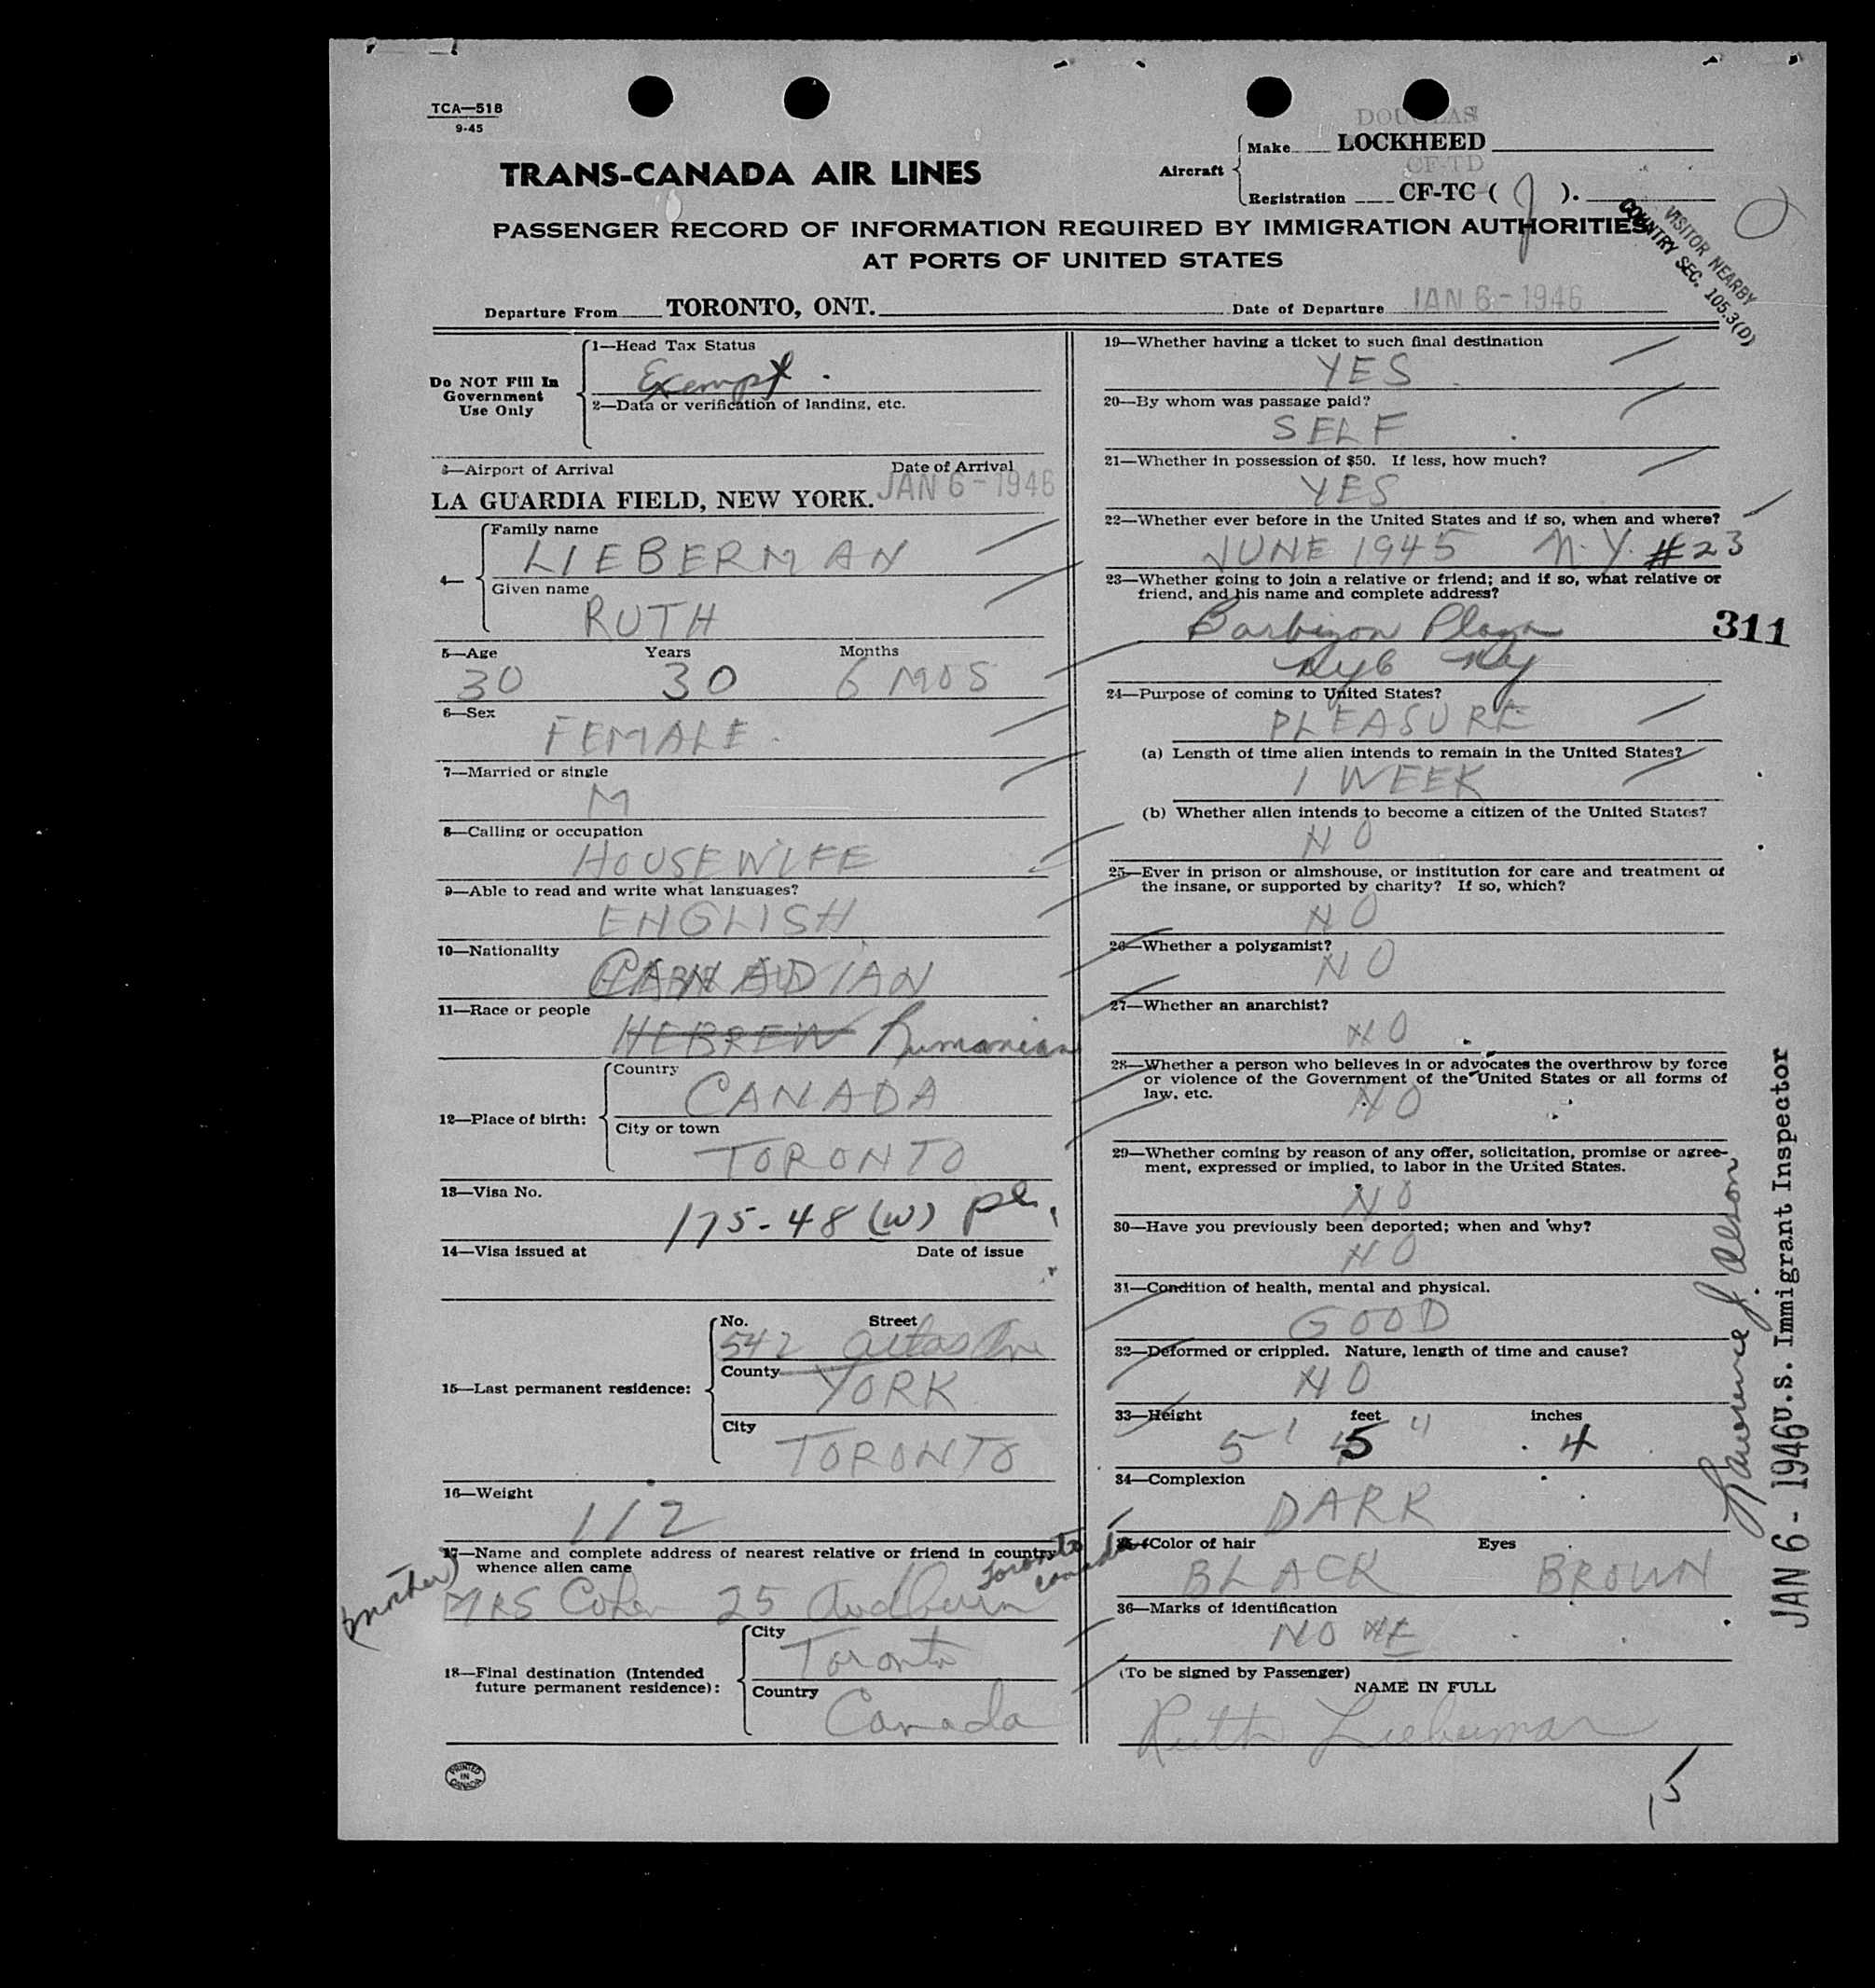 TCA—518
9-45
DOUGLAS
Aircraft
Make LOCKHEED
CF-TD
Registration CF-TC ( J ).
TRANS-CANADA AIR LINES
PASSENGER RECORD OF INFORMATION REQUIRED BY IMMIGRATION AUTHORITIES
AT PORTS OF UNITED STATES
VISITOR NEARBY
COUNTRY SEC. 105.3(D)
Departure From TORONTO, ONT. Date of Departure JAN 6 - 1946
Do NOT Fill In
Government
Use Only
1—Head Tax Status
Exempt.
2—Data or verification of landing, etc.
3—Airport of Arrival Date of Arrival
LA GUARDIA FIELD, NEW YORK. JAN 6 - 1946
4—
Family name
LIEBERMAN
Given name
RUTH
5—Age Years Months
30 30 6 MOS
6—Sex
FEMALE.
7—Married or single
M
8—Calling or occupation
HOUSEWIFE
9—Able to read and write what languages?
ENGLISH
10—Nationality
CANADIAN
11—Race or people
HEBREW Rumanian
12—Place of birth:
Country
CANADA
City or town
TORONTO
13—Visa No.
175-48 (W)
14—Visa issued at Date of issue
15—Last permanent residence:
No. Street
542
County
YORK
City
TORONTO
16—Weight
112
17—Name and complete address of nearest relative or friend in country
whence alien came
(mother) MRS Cohen 25 Toronto Canada
18—Final destination (Intended
future permanent residence):
City
Toronto
Country
Canada
PRINTED
IN
CANADA
19—Whether having a ticket to such final destination
YES
20—By whom was passage paid?
SELF
21—Whether in possession of $50. If less, how much?
YES
22—Whether ever before in the United States and if so, when and where?
JUNE 1945 N.Y. #23
23—Whether going to join a relative or friend; and if so, what relative or
friend, and his name and complete address?
Barbizon Plaza
311
NYC NY
24—Purpose of coming to United States?
PLEASURE
(a) Length of time alien intends to remain in the United States?
1 WEEK
(b) Whether alien intends to become a citizen of the United States?
NO
25—Ever in prison or almshouse, or institution for care and treatment of
the insane, or supported by charity? If so, which?
NO
26—Whether a polygamist?
NO
27—Whether an anarchist?
NO
28—Whether a person who believes in or advocates the overthrow by force
or violence of the Government of the United States or all forms of
law, etc.
NO
29—Whether coming by reason of any offer, solicitation, promise or agree-
ment, expressed or implied, to labor in the United States.
NO
30—Have you previously been deported; when and why?
NO
31—Condition of health, mental and physical.
GOOD
32—Deformed or crippled. Nature, length of time and cause?
NO
33—Height feet inches
5' 5" 4
34—Complexion
DARK
35—Color of hair Eyes
BLACK BROWN
36—Marks of identification
NONE
(To be signed by Passenger)
NAME IN FULL
Ruth Lieberman
15
Lawrence J. Olson
JAN 6 - 1946 U.S. Immigrant Inspector